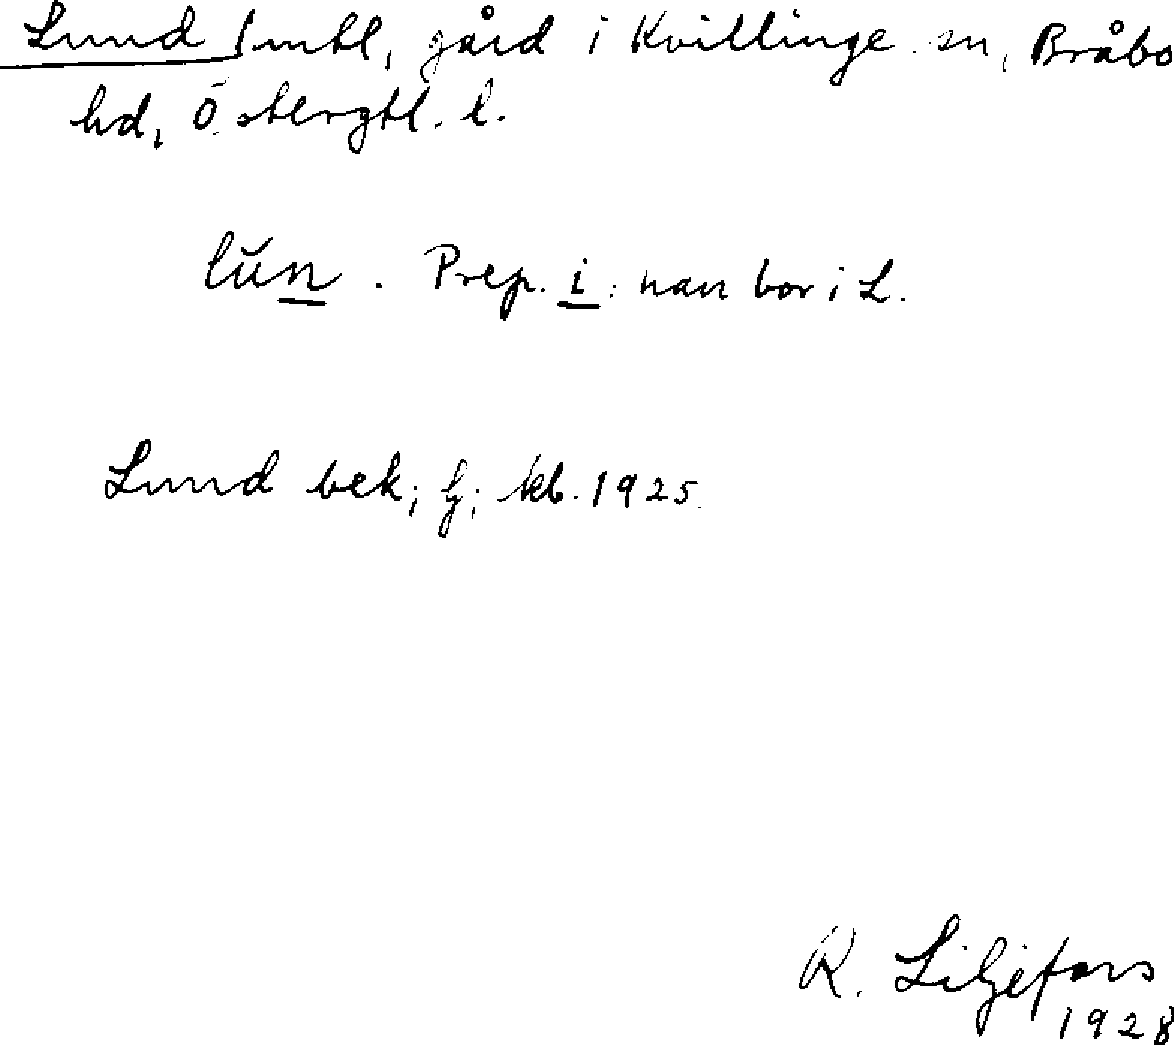 Lund 1 mtl, gård i Kvillinge sn, Bråbo
hd, Östergtl. l.
lŭn . Prep. i : han bor i L.
Lund bek; Gj; kb. 1925.
R. Liljefors
1928